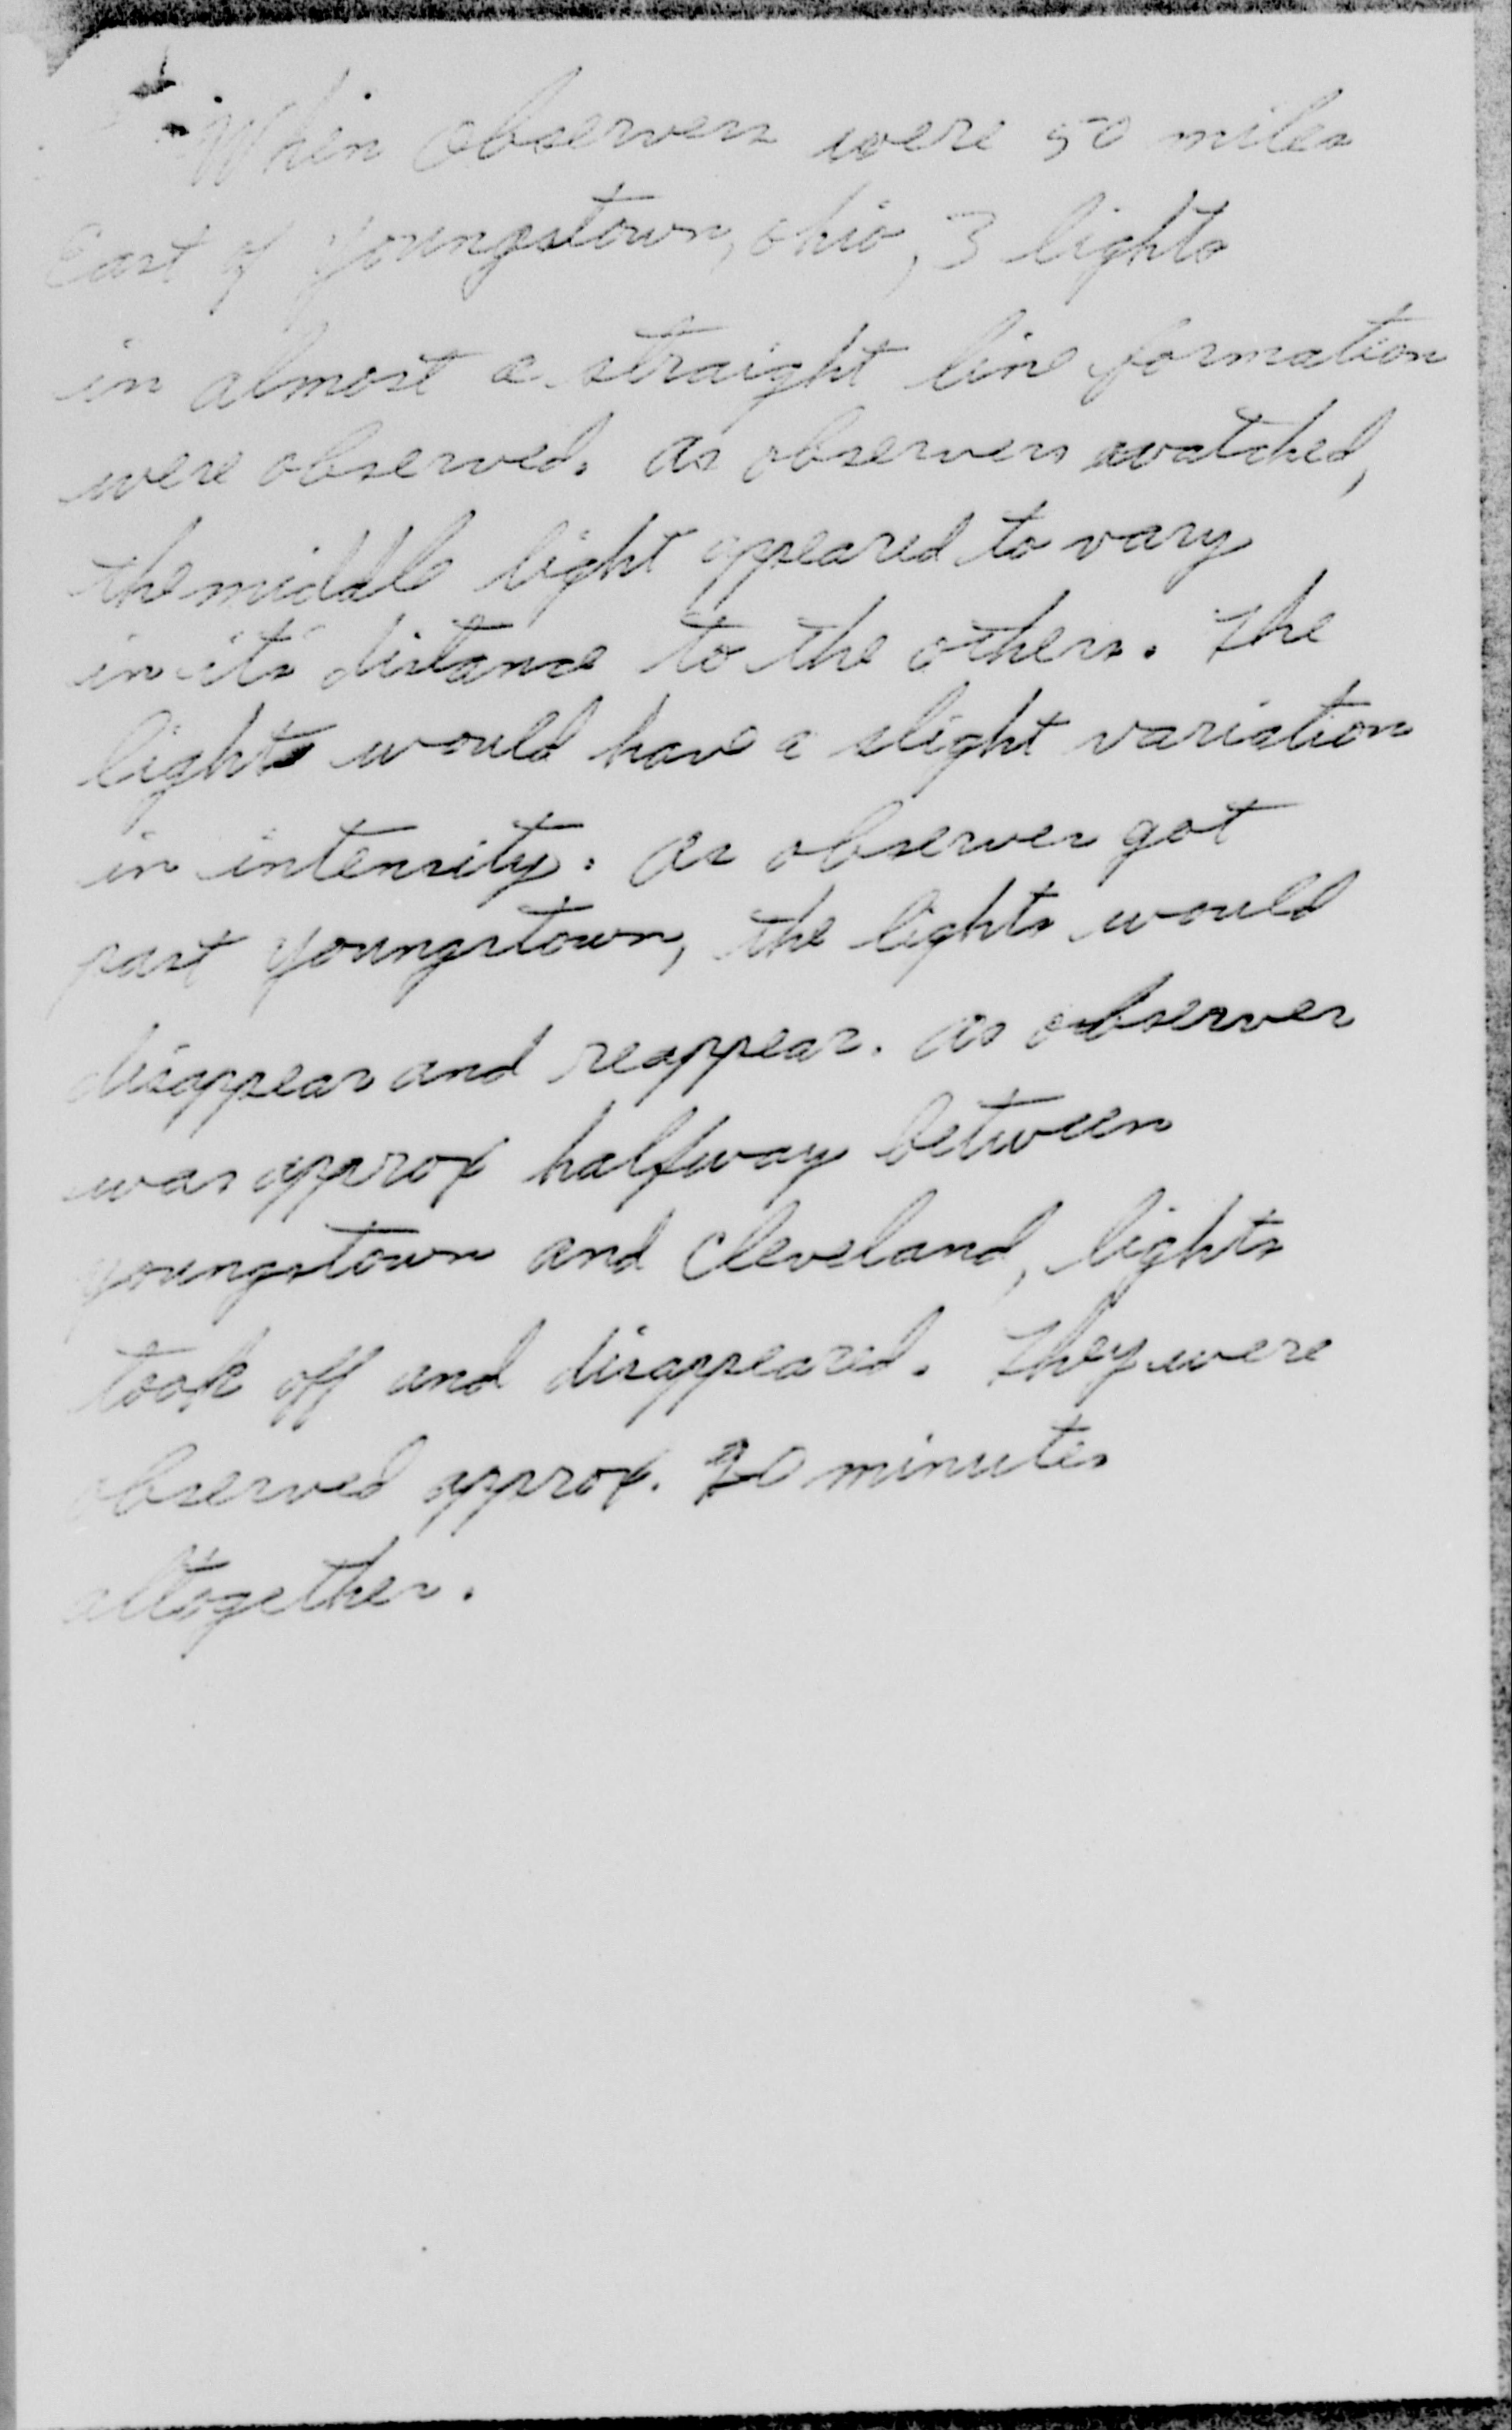 When observers were 50 miles
East of Youngstown, Ohio, 3 lights
in almost a straight line formation
were observed. As observers watched,
the middle light appeared to vary
in its distance to the others. The
lights would have a slight variation
in intensity. As observer got
past Youngstown, the lights would
disappear and reappear. As observer
was approx halfway between
Youngstown and Cleveland, lights
took off and disappeared. They were
observed approx. minutes
altogether.